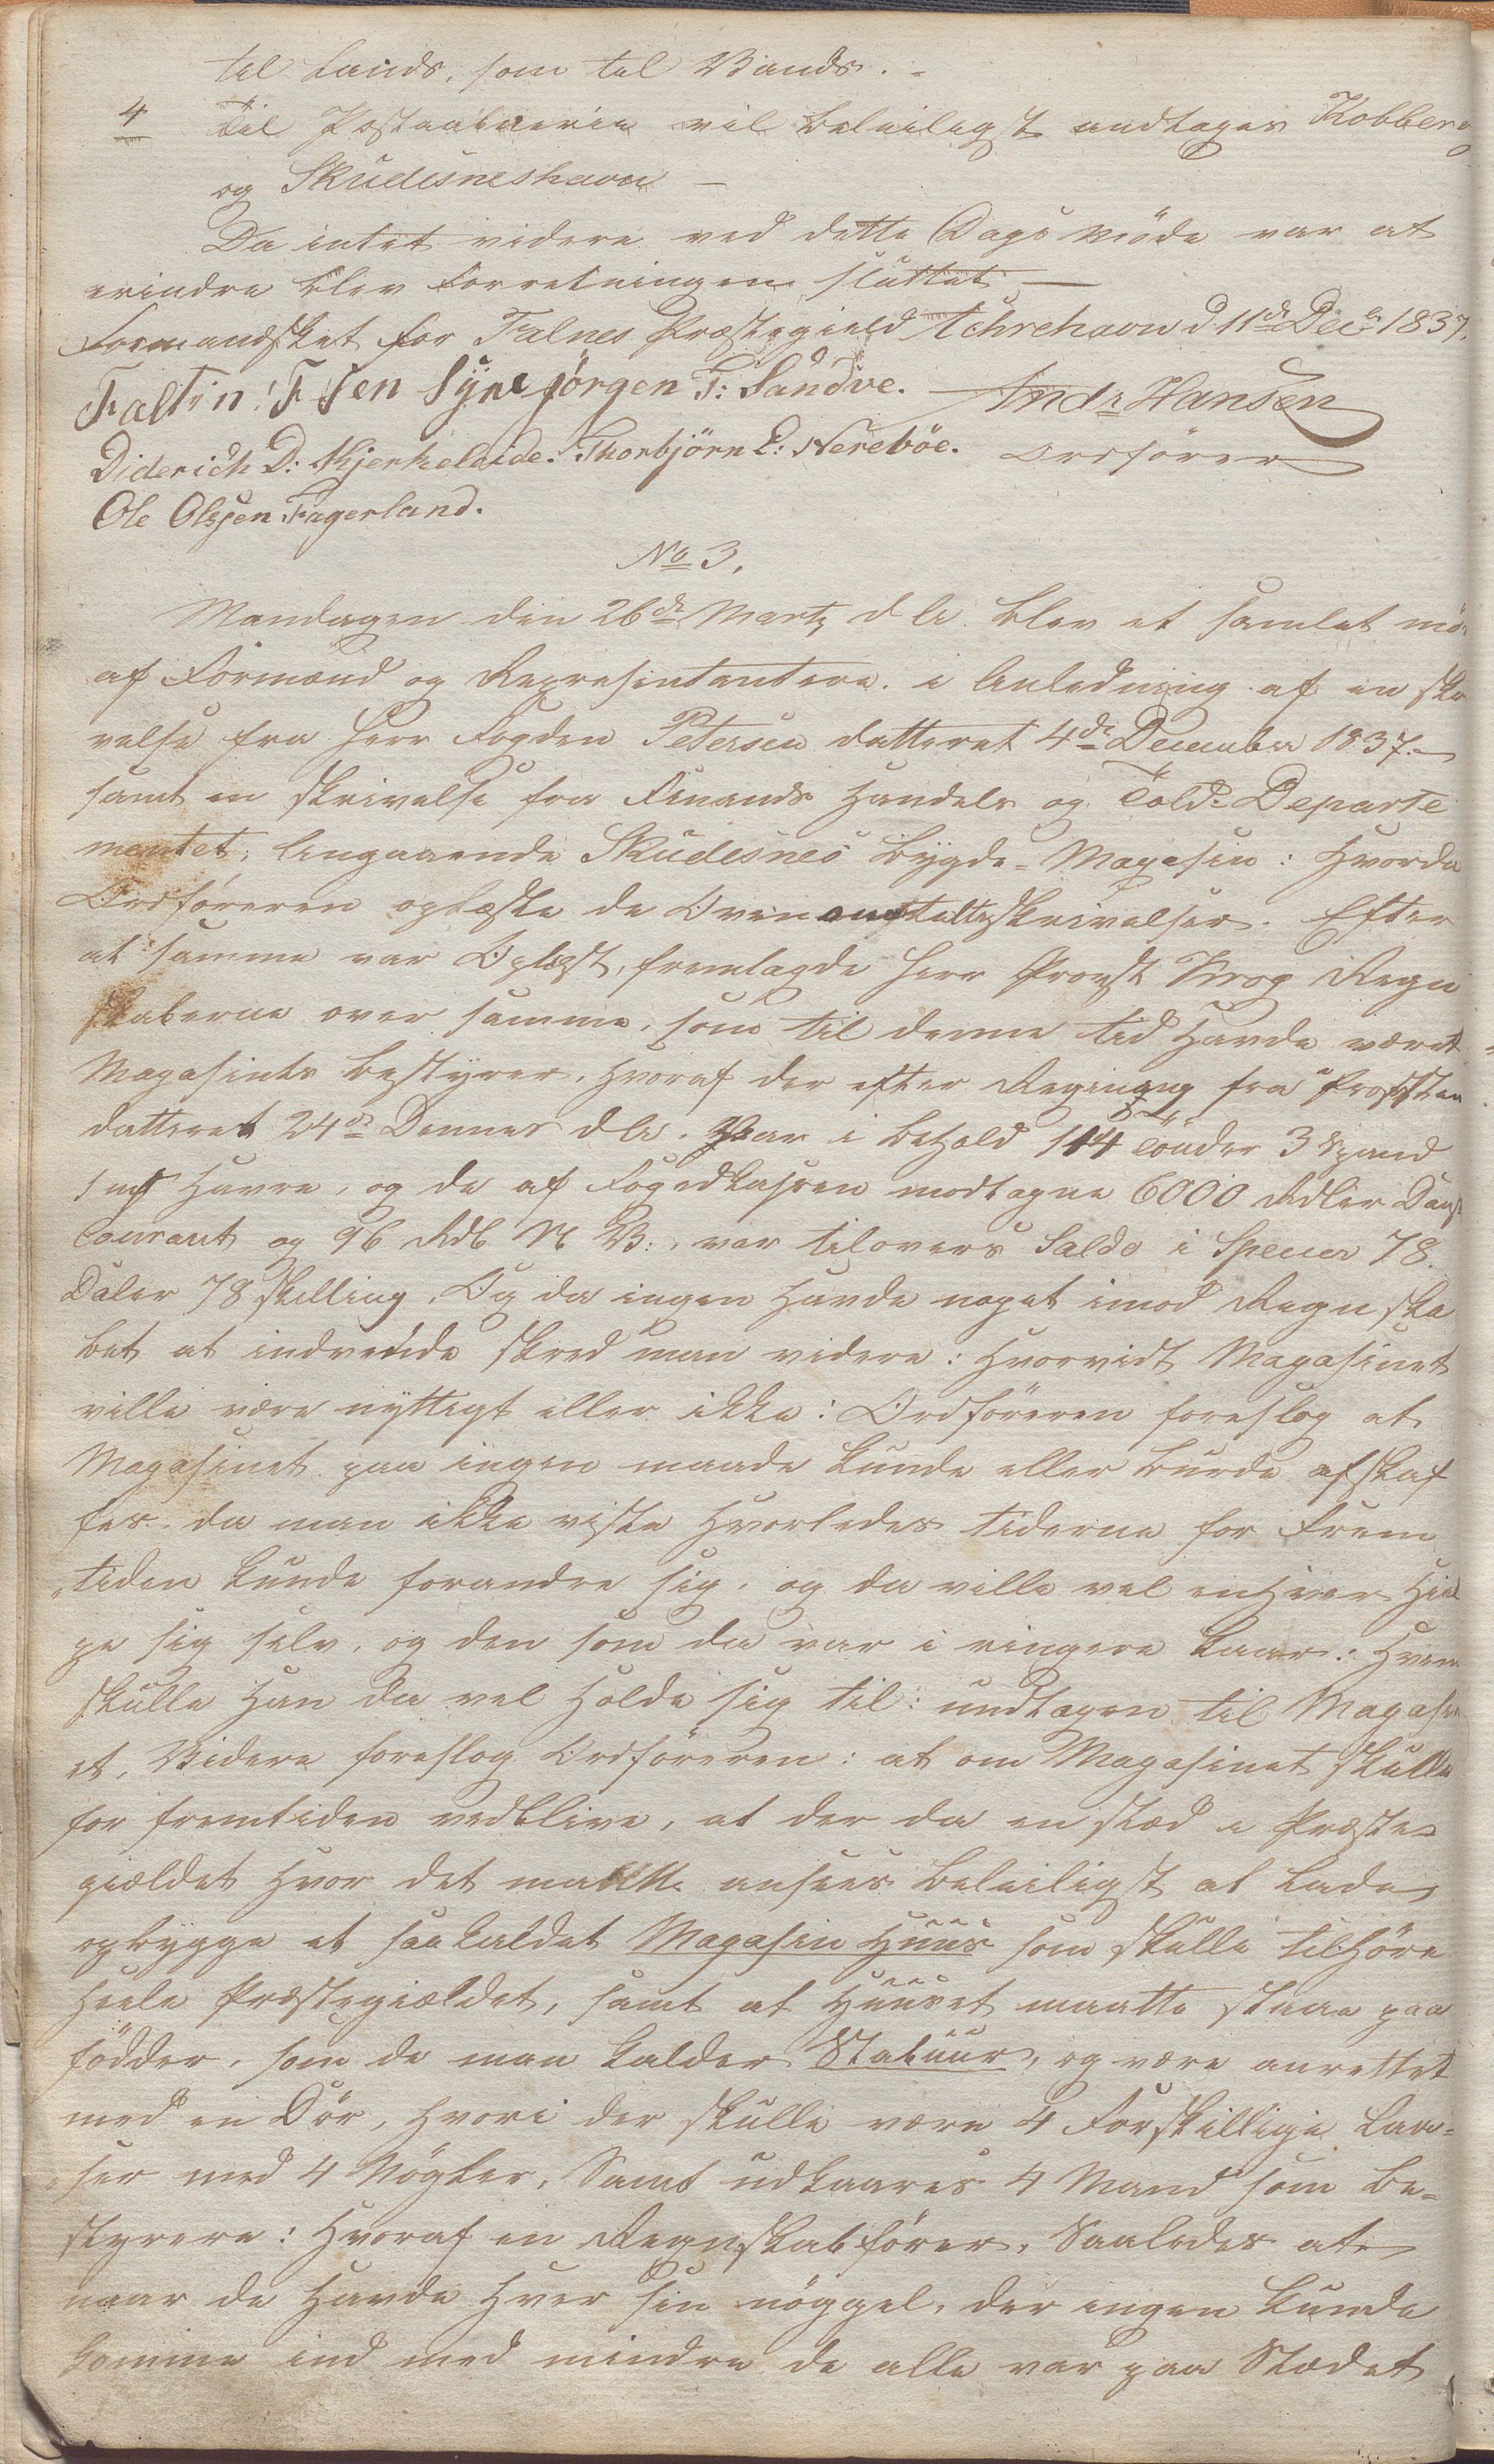 til Lands, som til Vands. -
4 Til Postaabnerie vil beleiligst andtages Kobber
og Skudesneshavn —
Da intet videre ved dette Dags Möde var at
erindre blev Forretningen sluttet —
Formandsket for Falnes Præstegield Achrehavn d 11te Decbr 1837.
Faltin: F Sen Syre Jörgen T: Sandve. Andr Hansen
Diderich D: Kjerkeleide. Thorbjörn E: Nereböe. Ordförer
Ole Olssen Fagerland.
No 3.
Mandagen den 26de Martz d A. blev et samlet mö
af Formænd og Representantere. i Anledning af en skr
velse fra Herr Fogden Petersen datteret 4de December 1837. —
samt en Skrivelse fra Finands Handels og Told-Departe
mentet, Angaaende Skudesnes Bygde-Magasin: Hvorda
Ordföreren oplæste de Ovenomtalte skrivelser. Efter
at samme var Oplæst, fremlagde Herr Provst Krog Regn
skaberne over samme, som til denne tid Havde været
Magasinets Bestyrer, Hvoraf der efter Regning fra Provsten
datteret 24de Dennes d A. Var i behold 114 Tönder 3 Spand
Havre, og de af Fogedkassen modtagne 6000 Rdler Dansk
Courant og 96 Rdl N B:, var tilovers Saldo i Specier 78.
Daler 78 Skilling, Og da ingen Havde noget imod Regnska
bet at indvende skred man videre: Hvorvidt Magasinet
ville være nyttigt eller ikke: Ordföreren foreslog at
Magasinet paa ingen maade kunde eller burde afskaf
fes. da man ikke viste Hvorledes tiderne for Frem
tiden kunde forandre sig, og da ville vel enhver Hiel
pe sig selv, og den som da var i ringere Kaar: Hvem
skulle Han da vel Holde sig til: undtagen til Magasin
et, Videre foreslog Ordföreren: at om Magasinet skulle
for fremtiden vedblive, at der da en stæd i Præste-
gieldet Hvor det maatte ansees beleiligst at lade
opbygge et saakaldet Magasin Huus som skulle tilHöre
Heele Præstegieldet, samt at Huuset maatte staae paa
födder, som de man kalder Stabuur, og være anrettet
med en Dör, Hvori der skulle være 4 Forskillige Laa-
ser med 4 Nögler, Samt udkaares 4 Mand som be-
styrere: Hvoraf en Regnskabförer, Saaledes at
naar de Havde Hver sin nöggel, der ingen kunde
komme ind med mindre de alle var paa Stædet